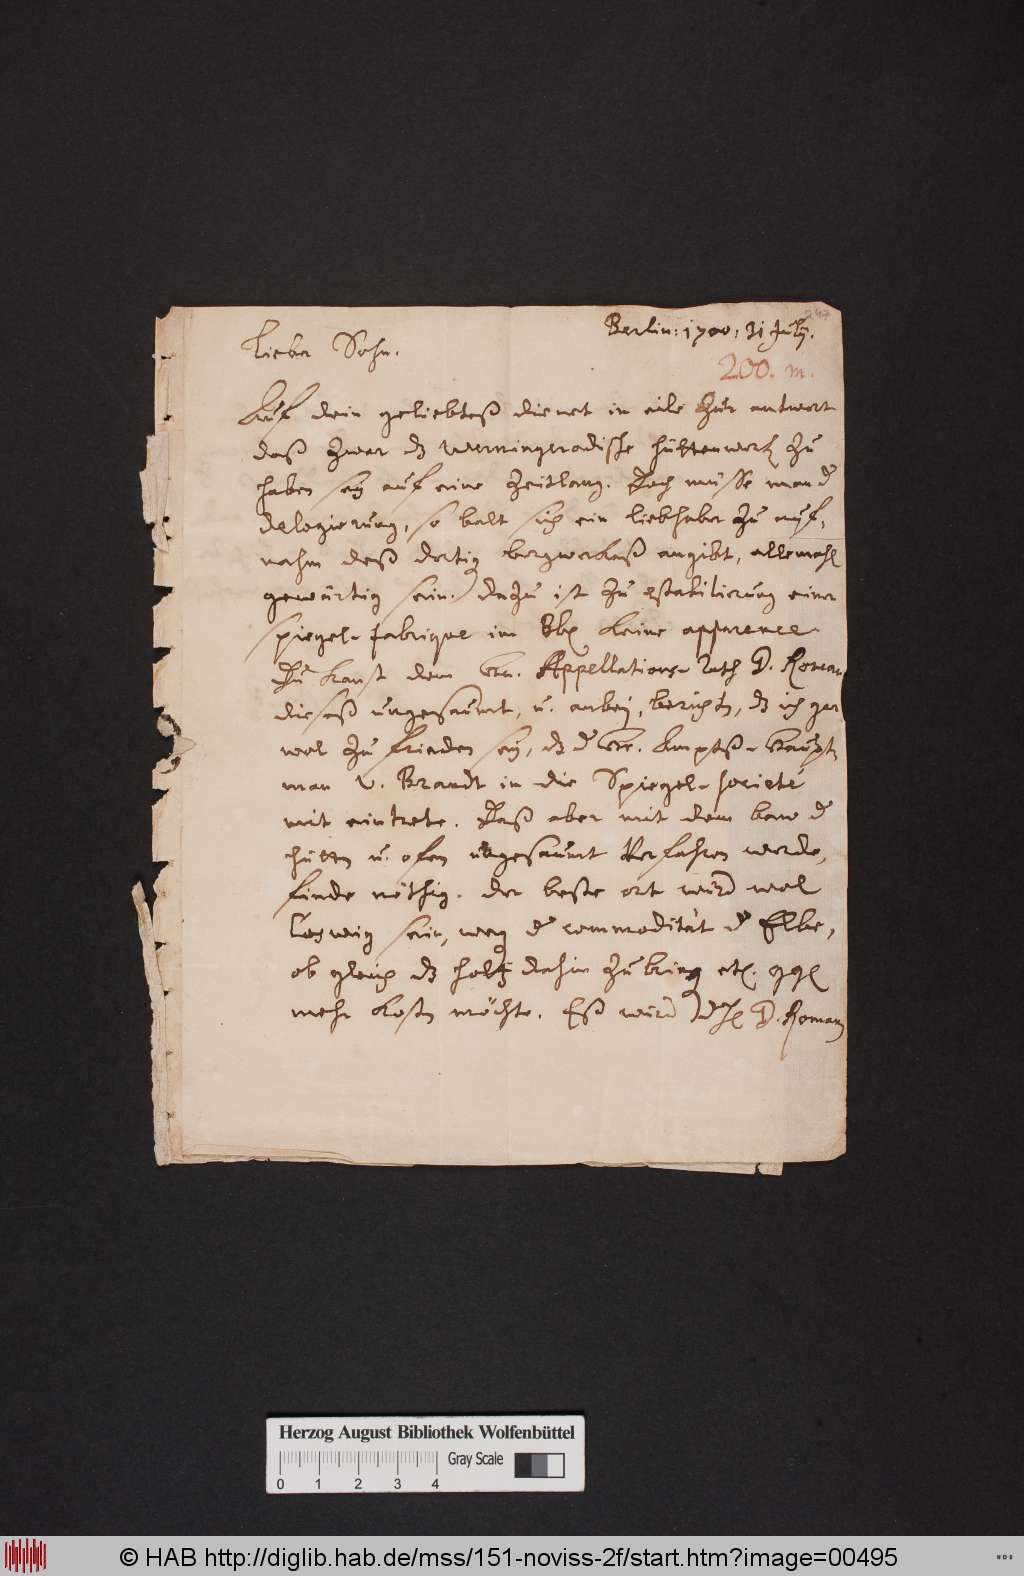 247
Berlin: 1700: 31 July.
Lieber Sohn.
200. m.
Auf dein geliebteß dienet in eile zur antwort
daß zwar dz Werningerodische hüttenwerk zu
haben sey auf eine Zeitlang. Doch müsse man d
delogierung, so balt sich ein liebhaber zu auf-
nahm deß dortig bergwerkeß angibt, allemahl
gewärtig sein. dazu ist zu establierung einer
spiegel-fabrique im keine apparence
Du kanst dem Hn. Appellations-Rath D. Roman
dieseß ungesaumt, u. anbey, berichtn, dz ich gar
wol zu frieden sey, dz d Hr. Ampts-Haupt-
man v. Brandt in die Spiegel-societé
mit eintrete. Daß aber mit dem baw d
hüttn u. ofen ungesaumt Verfahren werde,
finde nöthig. der beste ort würd wol
Coswig sein, weg d commodität d Elbe,
ob gleich dz holtz dahin zu bring etc.
mehr kostn möchte. Eß würd D. Roman
Herzog August Bibliothek Wolfenbüttel
Gray Scale
0 1 2 3 4
© HAB http://diglib.hab.de/mss/151-noviss-2f/start.htm?image=00495